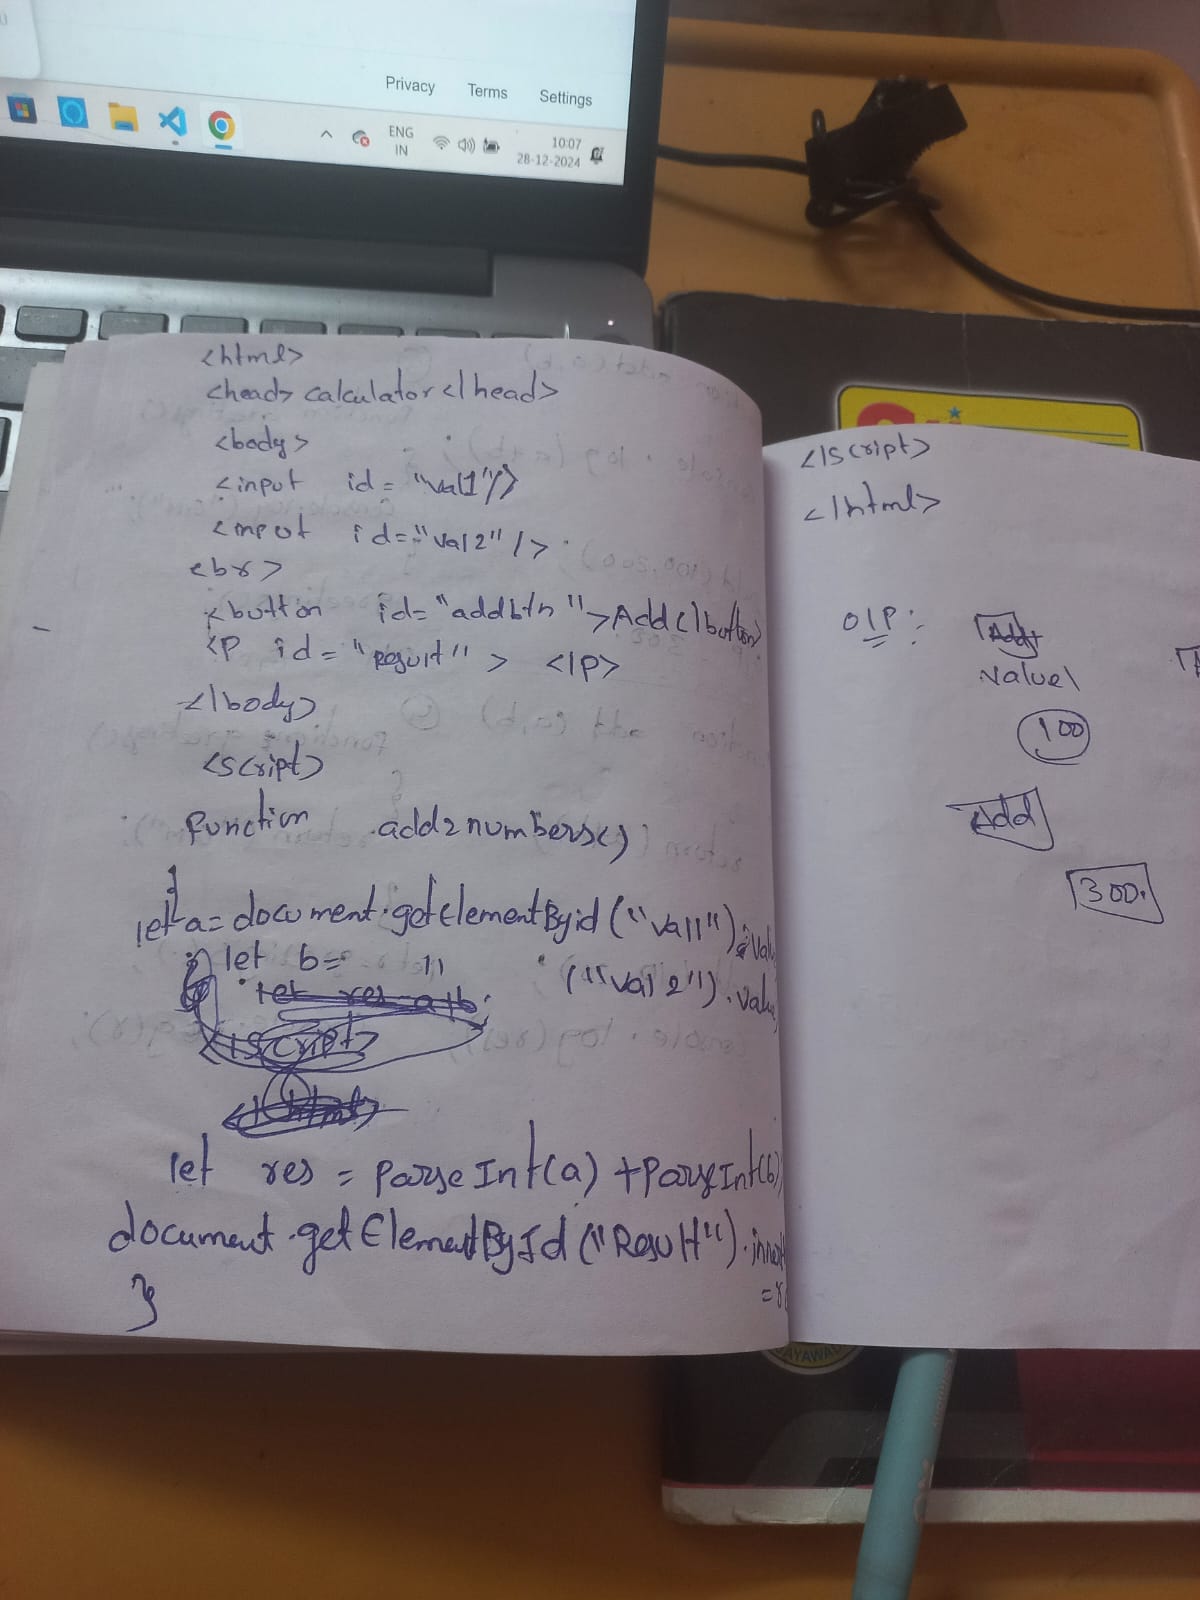 Privacy Terms Settings
ENG
IN
10:07
28-12-2024
<html>
<head> calculator </head>
<body>
<input id = "val1"/>
<input id = "val2" />
<br>
<button id= "addbtn"> Add </button>
<P id = "Result" > </P>
</body>
<script>
function add2numbers()
{
let a= document.getElementByid ("val1").valu
let b= " ("val2").value
let res = a+b;
</script>
</html>
let res = parseInt(a) + parseInt(b)
document.getElementById ("Result").inner
= r
}
</script>
</html>
O/P :
Add
value1
100
Add
300.